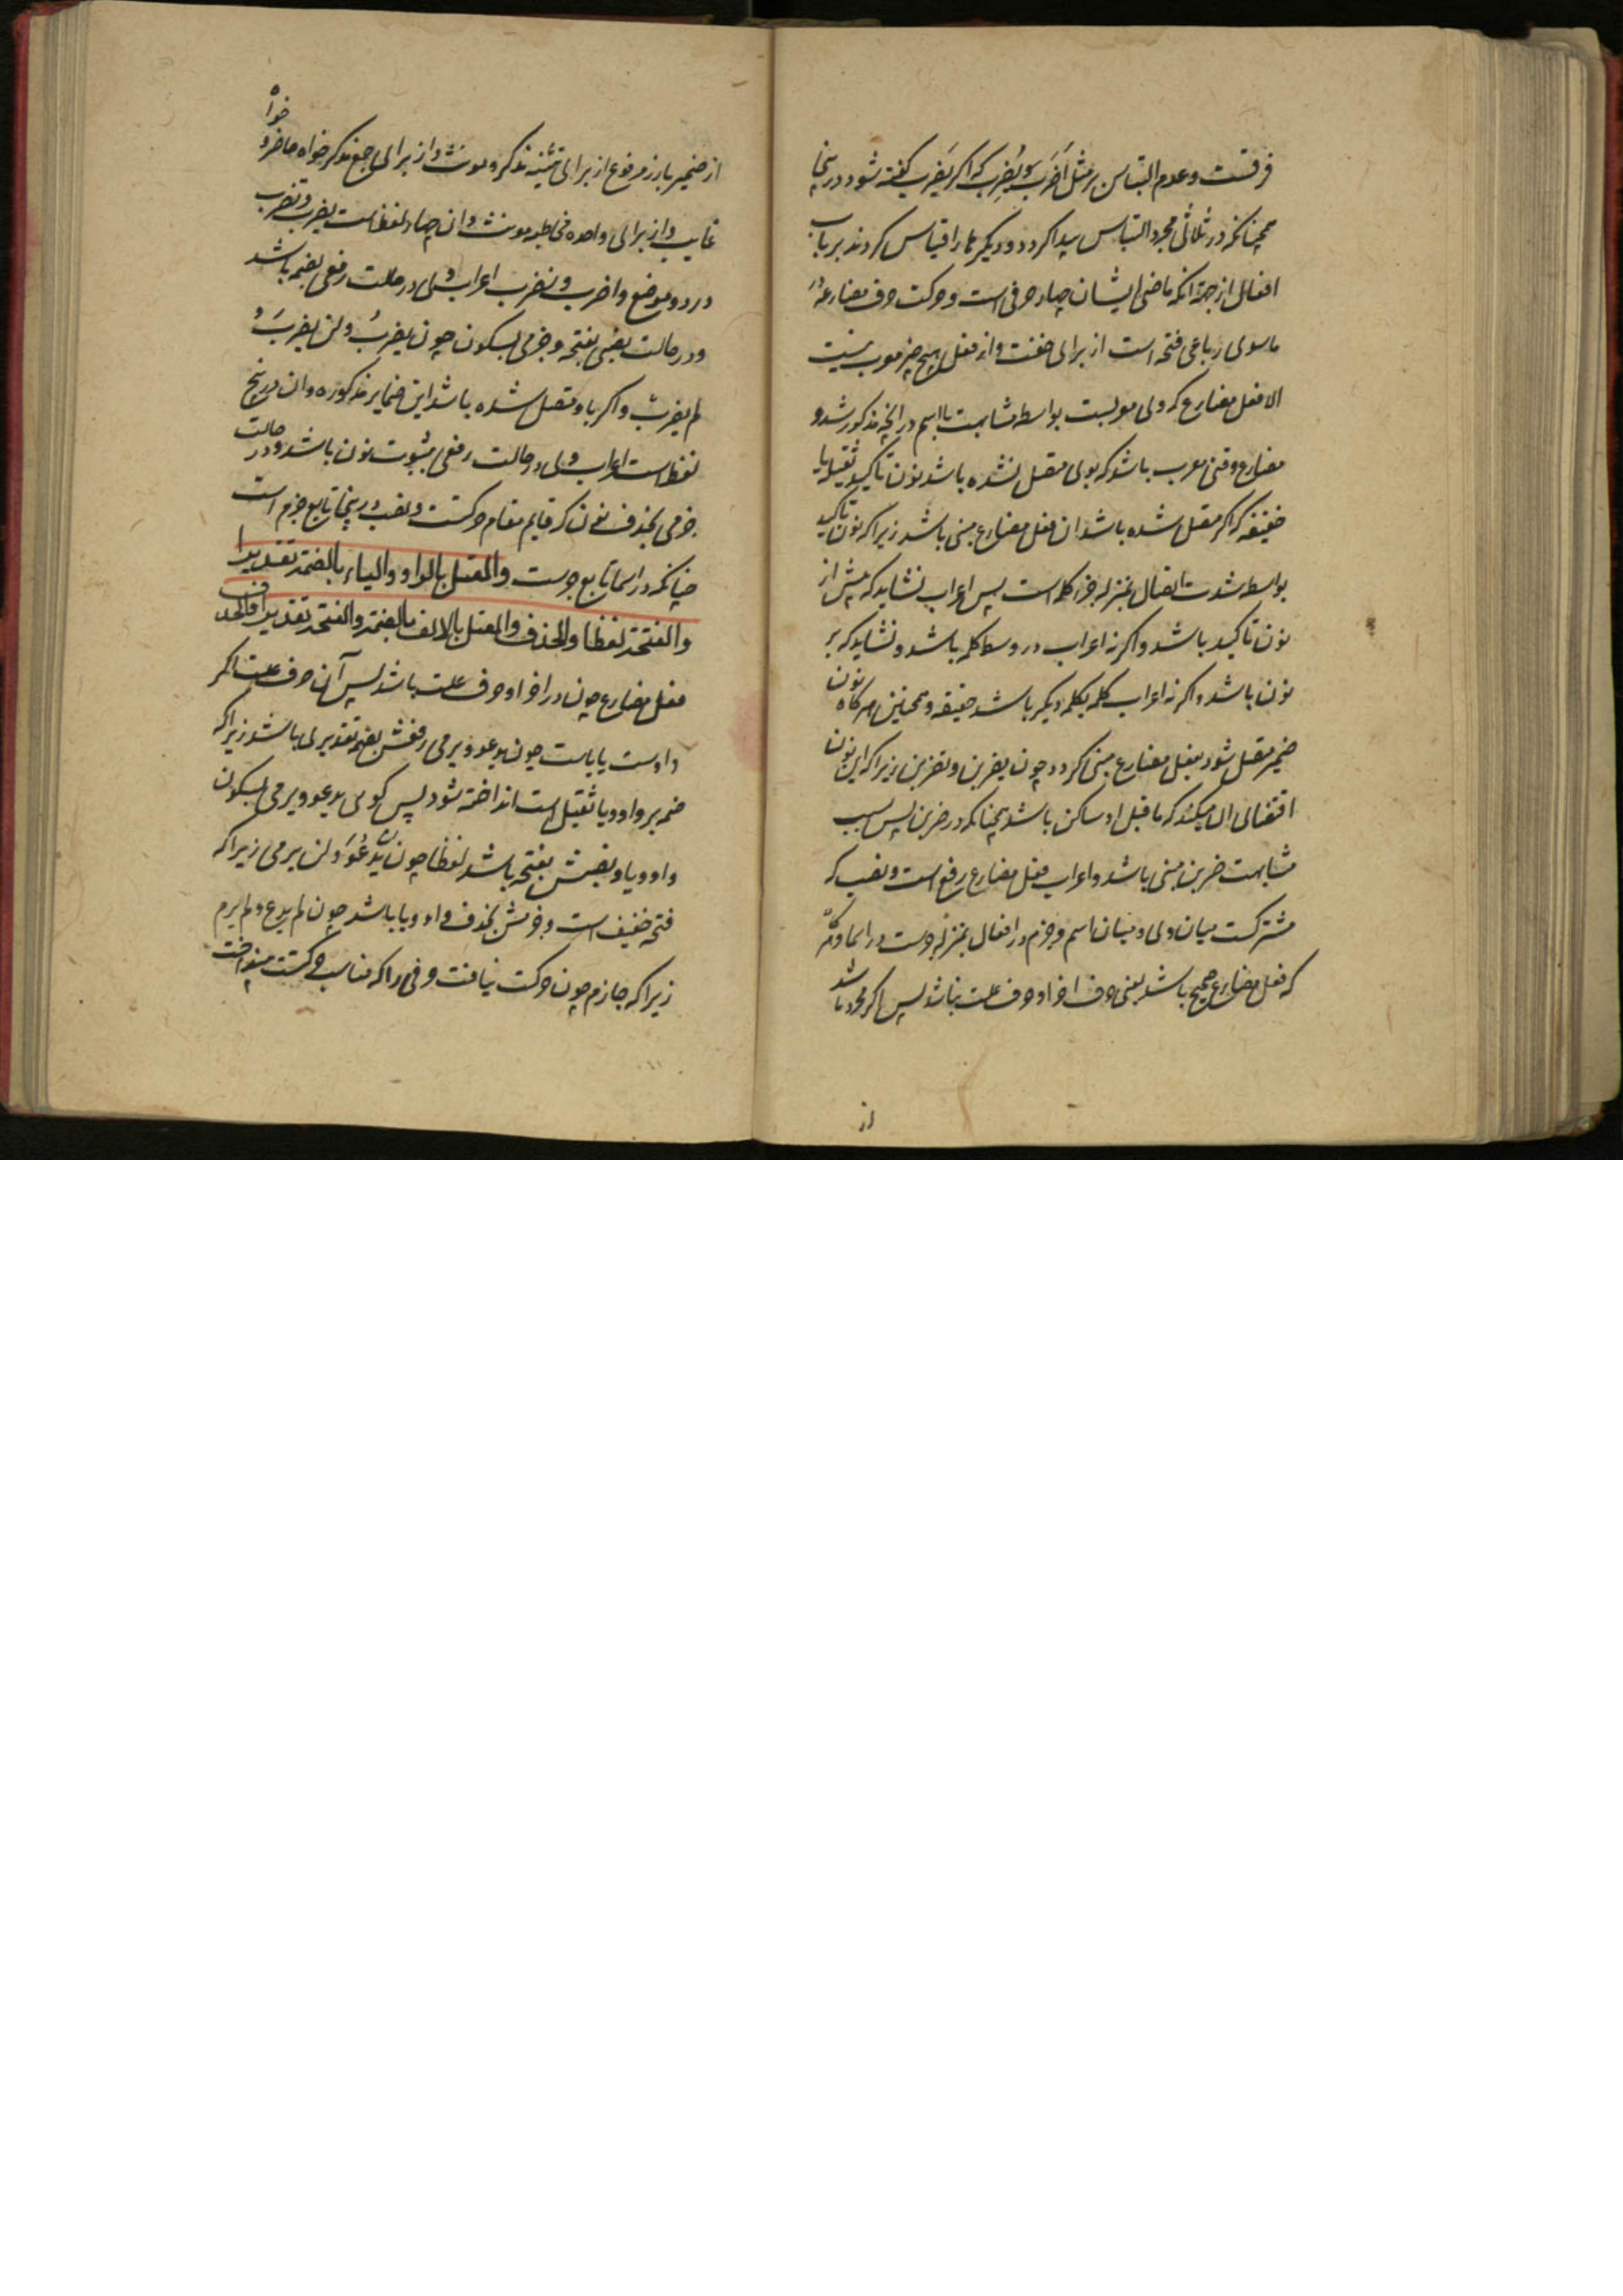 فرقست و عدم التباس بر مثل اضرب و يُضرِب كه اكر يَضرب كفته شود درينجا
همچنانكه در ثلاثى مجرد التباس پيدا كردد و ديكرها را قياس كردند بر باب
افعال از جهة انكه ماضى ايشان چهار حرفى است و حركت حرف مضارعه در
ماسواى رباعى فتحه است از براى خفت و از فعل هيچ چيز معرب نيست
الا فعل مضارع كه وى معربست بواسطه مشابهت با اسم در انچه مذكور شد و
مضارع وقتى معرب باشد كه بوى متصل نشده باشد نون تاكيد ثقيله يا
خفيفه كه اكر متصل شده باشد ان فعل مضارع مبنى باشد زيرا كه نون تاكيد
بواسطه شدت اتصال بمنزله جزء كلمه است پس اعراب نشايد كه پيش از
نون تاكيد باشد و اكر نه اعراب در وسط كلمه باشد و نشايد كه بر
نون باشد و اكر نه اعراب كلمه بكلمه ديكر باشد حقيقه و همچنين هركاه نون
ضمير متصل شود بفعل مضارع مبنى كردد چون يضربن و تضربن زيرا كه اين نون
اقتضاى ان ميكند كه ماقبل او ساكن باشد همچنانكه در ضربن پس بسبب
مشابهت ضربن مبنى باشد و اعراب فعل مضارع رفع است و نصب كه
مشتركست ميان وى و ميان اسم و جزم در افعال بمنزله جرست در اسما و
كه فعل مضارع صحيح باشد يعنى حرف اخر او حرف علت نباشد پس اكر مجرد باشد
از
از ضمير بارز مرفوع از براى تثنيه مذكر و مونث و از براى جمع مذكر خواه حاضر و خواه
غايب و از براى واحده مخاطبه مونث و ان چهار لفظ است يضرب و تضرب
در دو موضع و اضرب و نضرب اعراب وى در حالت رفعى بضمه باشد
و در حالت نصبى بفتحه و جزمى بسكون چون يضربُ و لن يضربَ و
لم يضربْ و اكر باو متصل شده باشد اين ضماير مذكوره و ان در پنج
لفظ است اعراب وى در حالت رفعى بثبوت نون باشد و در حالت
جزمى بحذف نون كه قايم مقام حركتست و نصب درينجا تابع جزم است
چنانكه در اسما تابع جرست والمعتل بالواو والياء بالضمة تقديرا
والفتحة لفظا والحذف والمعتل بالالف بالضمة والفتحة تقديرا والحذف
فعل مضارع چون در اخر او حرف علت باشد پس آن حرف علت اكر
واوست يا ياست چون يدعو و يرمى رفعش بضمه تقديرى باشد زيرا كه
ضمه بر واو و يا ثقيل است انداخته شود پس كوى يدعو و يرمى بسكون
واو و يا و نصبش بفتحه باشد لفظا چون لن يَدْعُوَ و لن يرمى زيرا كه
فتحه خفيف است و جزمش بحذف واو و يا باشد چون لم يدع و لم يرم
زيرا كه جازم چون حركت نيافت حرفى را كه مناسب حركتست مينداخت